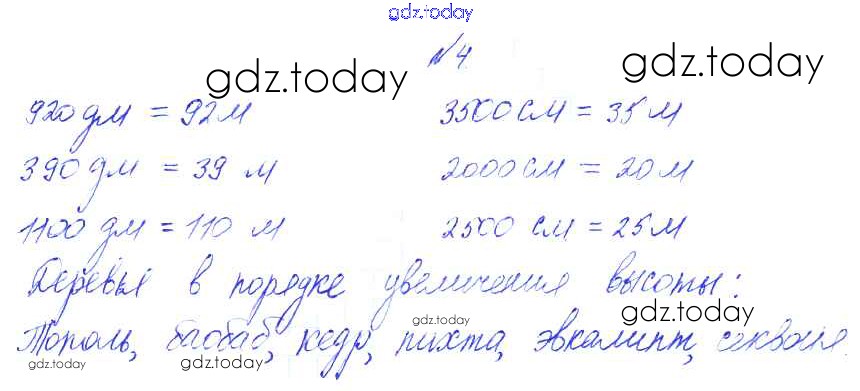 gdz.today
№4.
gdz.today gdz.today
920 дм = 92 м 3500 см = 35 м
390 дм = 39 м 2000 см = 20 м
1100 дм = 110 м 2500 см = 25 м
Деревья в порядке увеличения высоты:
gdz.today
Тополь, баобаб, кедр, пихта, эвкалипт, секвоя.
gdz.today gdz.today gdz.today